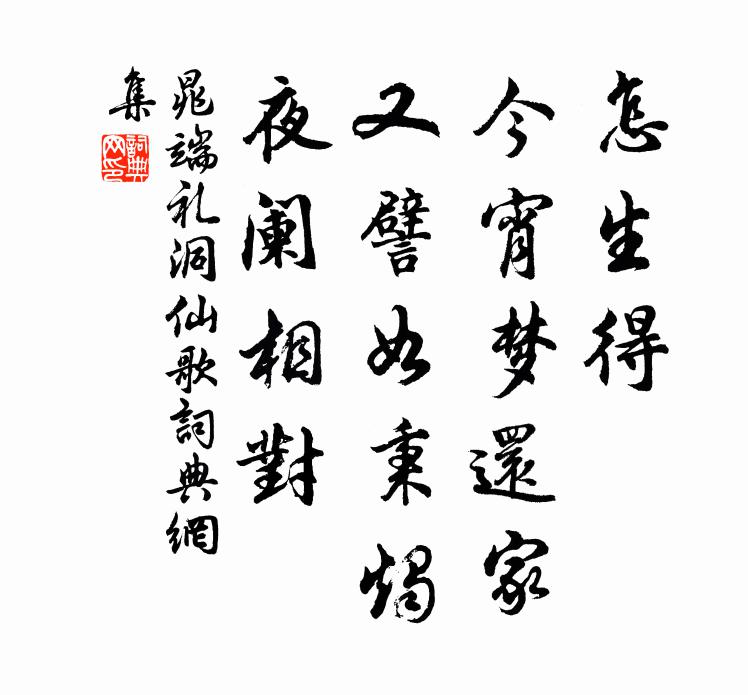 怎生得
今宵梦還家
又譬如秉燭
夜阑相對
晁端礼洞仙歌詞典網
集
詞典
网印